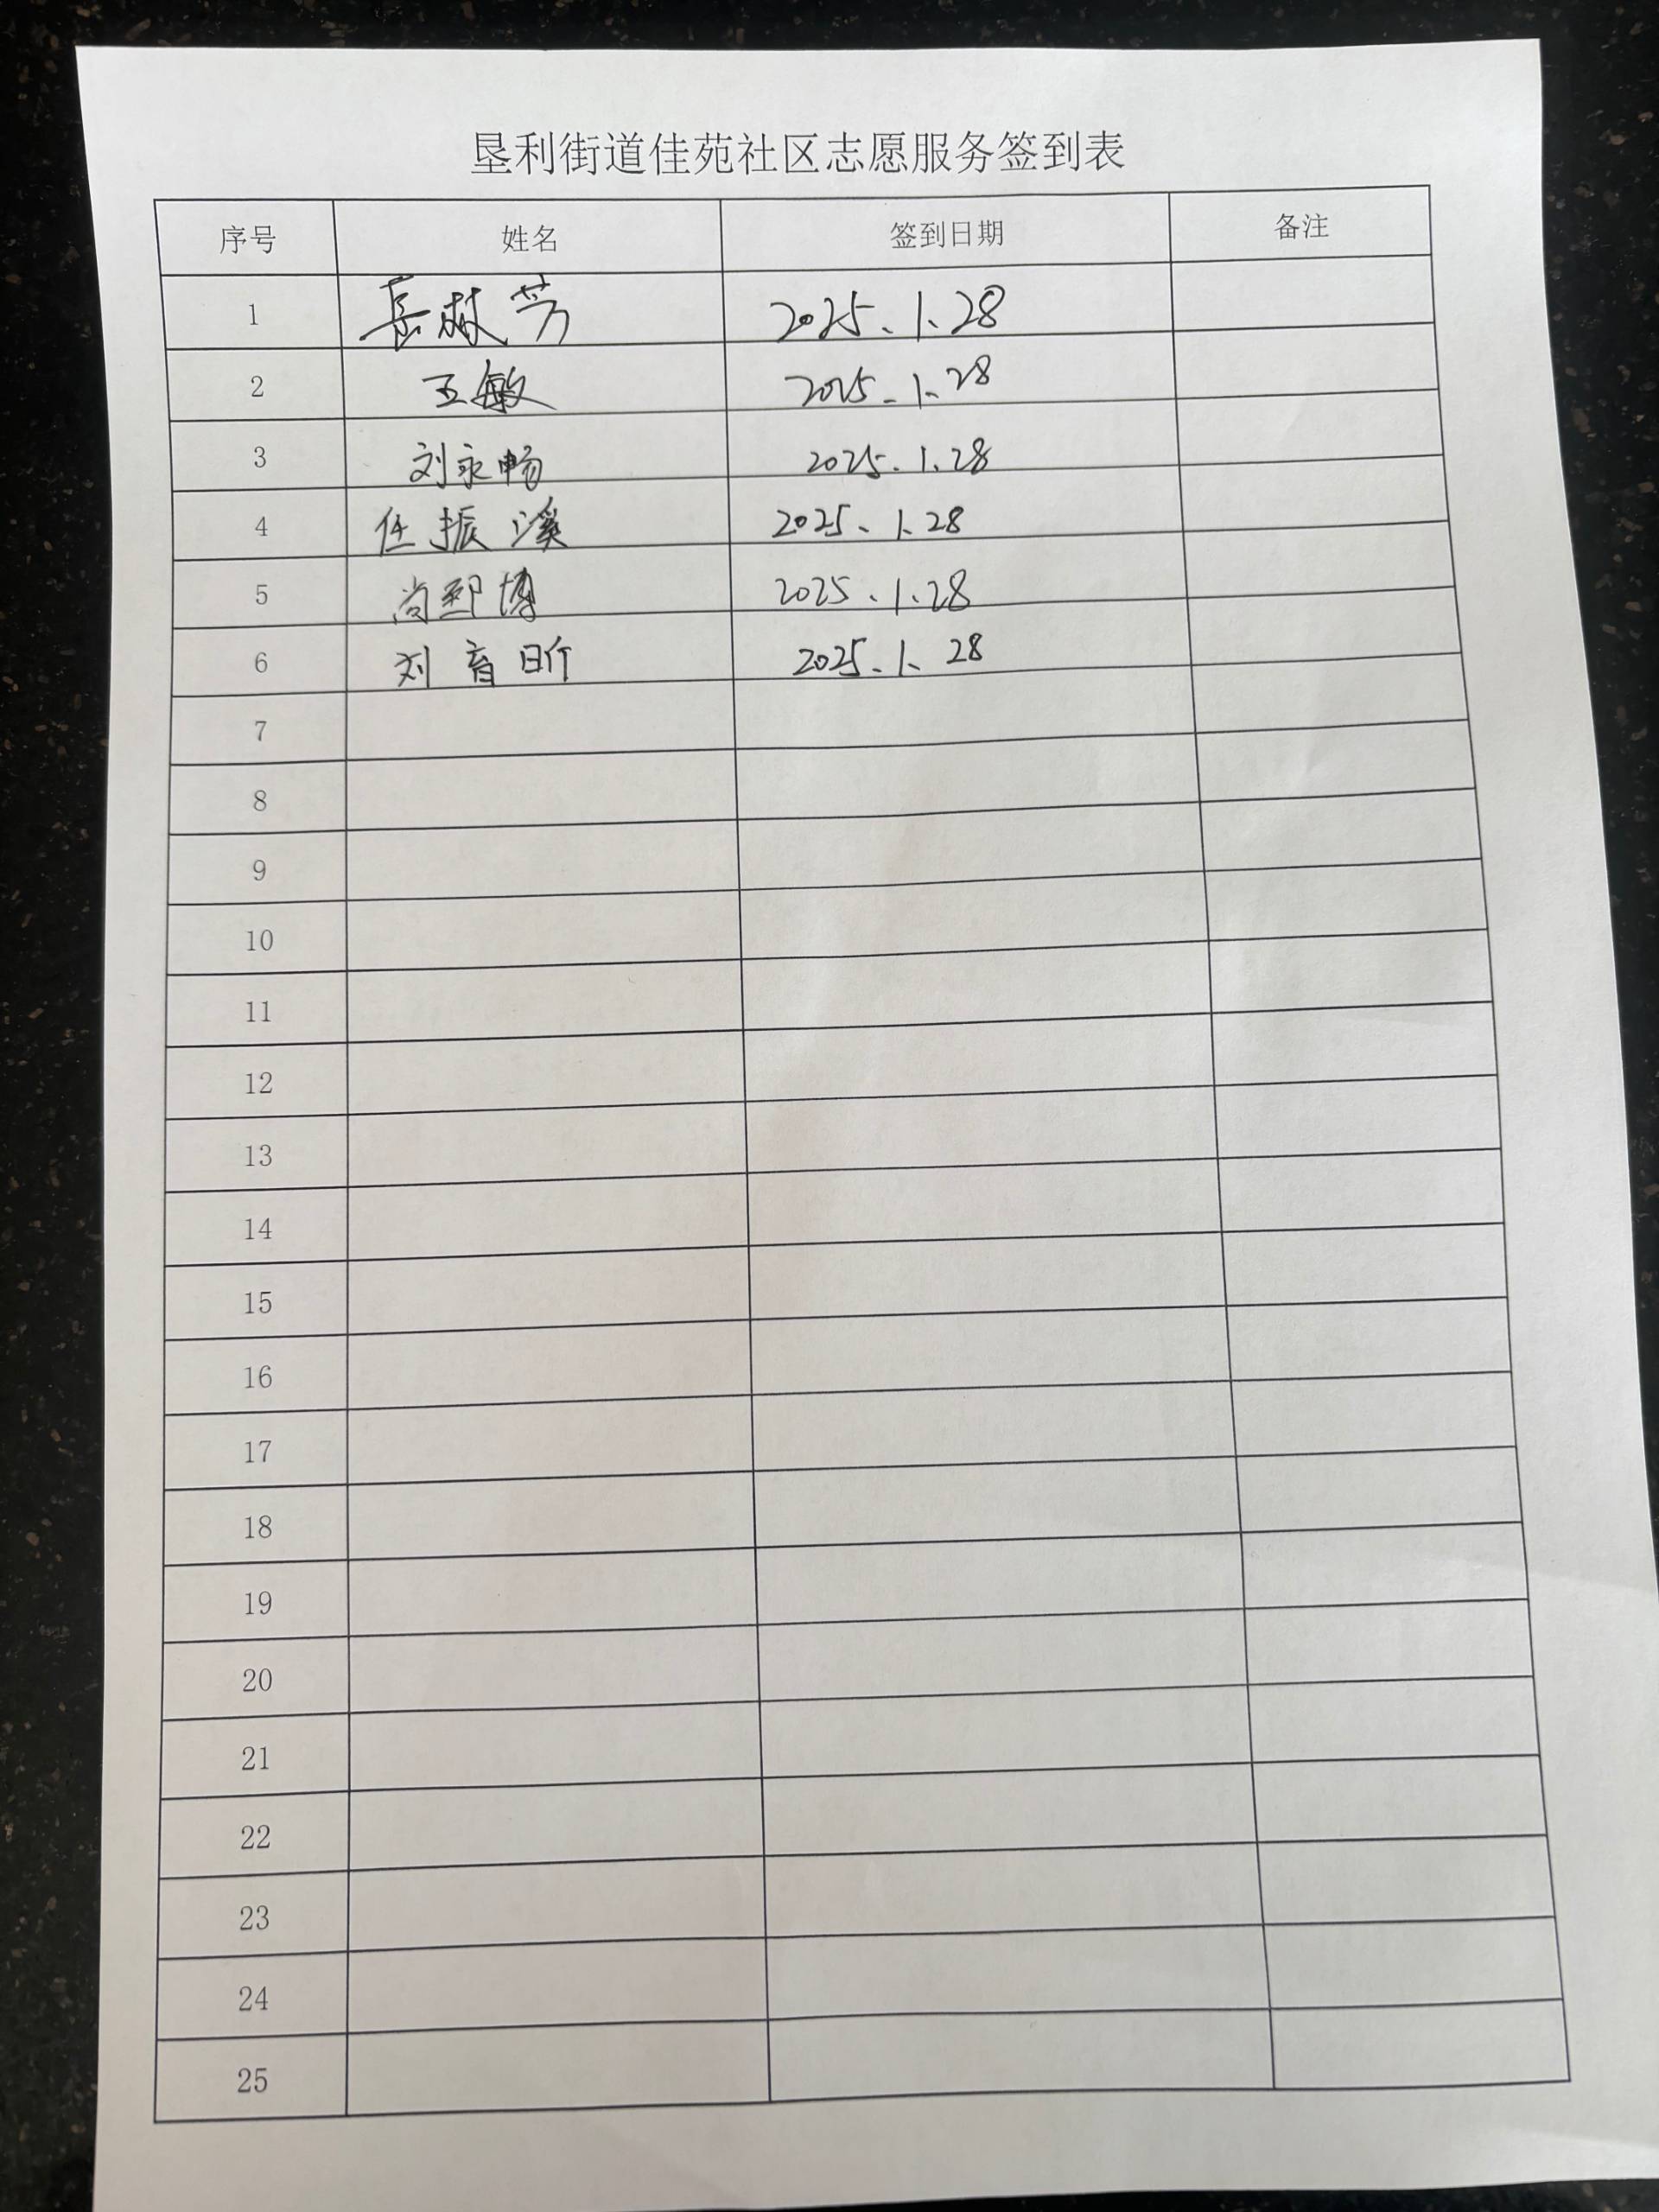 垦利街道佳苑社区志愿服务签到表
序号 姓名 签到日期 备注
1 2025.1.28
2 王敏 2025.1.28
3 刘永畅 2025.1.28
4 任振溪 2025.1.28
5 尚郅博 2025.1.28
6 刘育昕 2025.1.28
7
8
9
10
11
12
13
14
15
16
17
18
19
20
21
22
23
24
25